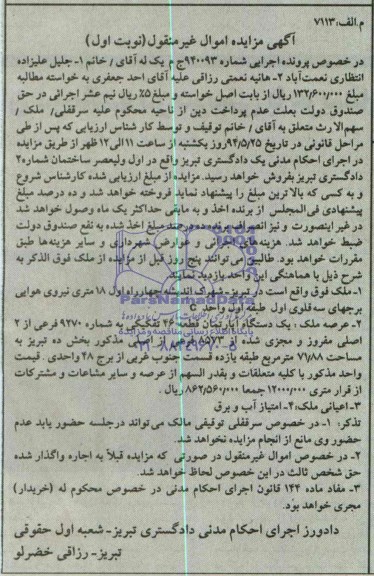 م.الف:۷۱۱۳
آگهی مزایده اموال غیرمنقول(نوبت اول)
در خصوص پرونده اجرایی شماره ۹۴۰۰۹۳ج م یک له آقای / خانم ۱-جلیل علیزاده
انتظاری نعمت آباد ۲-هانیه نعمتی رزاقی علیه آقای احد جعفری به خواسته مطالبه
مبلغ ۱۳۲/۶۰۰/۰۰۰ ریال از بابت اصل خواسته و مبلغ ۵٪ ریال نیم عشر اجرائی در حق
صندوق دولت بعلت عدم پرداخت دین از ناحیه محکوم علیه سرقفلی/ ملک /
سهم الارث متعلق به آقای / خانم توقیف و توسط کارشناس ارزیابی که پس از طی
مراحل قانونی در تاریخ ۹۴/۵/۲۵روز یکشنبه از ساعت ۱۱الی۱۲ ظهر از طریق مزایده
در اجرای احکام مدنی یک دادگستری تبریز واقع در اول ولیعصر ساختمان شماره۲
دادگستری تبریز بفروش خواهد رسید. مزایده از مبلغ ارزیابی شده کارشناس شروع
و به کسی که بالاترین مبلغ را پیشنهاد نماید فروخته خواهد شد و ده درصد مبلغ
پیشنهادی فی المجلس از برنده اخذ و به مابقی حداکثر یک ماه وصول خواهد شد
در غیر اینصورت و نیز انصراف برنده ده درصد مبلغ اخذ شده به نفع صندوق دولت
ضبط خواهد شد. هزینه های و عوارض شهرداری و سایر هزینه ها طبق
مقررات خواهد بود. طالبین می توانند پنج روز قبل از مزایده از ملک فوق الذکر به
شرح ذیل با هماهنگی این واحد بازدید نمایند
۱-ملک فوق واقع است در تبریز-شهرک اندیشه چهارراه اول ۱۸ متری نیروی هوایی
برجهای سه قلوی اول طبقه اول واحد C
۲- عرصه ملک : یک دستگاه آپارتمان قطعه ۴۶ تفکیکی به شماره ۹۲۷۰ فرعی از ۲
اصلی مفروز و مجزی شده از ۸۵۷۳ فرعی از اصلی مذکور بخش ده تبریز به
مساحت ۷۱/۸۸ مترمربع طبقه یازده قسمت جنوب غربی از برج ۴۸ واحدی. قیمت
واحد مذکور با کلیه متعلقات و بقدر السهم از عرصه و سایر مشاعات و مشترکات
از قرار متری ۱۲۰۰۰/۰۰۰ جمعا ۸۶۲/۵۶۰/۰۰۰ ریال .
۳-اعیانی ملک:۴-امتیاز آب و برق
تذکر: ۱- در خصوص سرقفلی توقیفی مالک می تواند درجلسه حضور یابد عدم
حضور وی مانع از انجام مزایده نخواهد شد.
۲- در خصوص اموال غیرمنقول در صورتی که مزایده قبلاً به اجاره واگذار شده
حق شخص ثالث در این خصوص لحاظ خواهد شد.
۳- مفاد ماده ۱۴۴ قانون اجرای احکام مدنی در خصوص محکوم له (خریدار)
مجری خواهد بود.
دادورز اجرای احکام مدنی دادگستری تبریز-شعبه اول حقوقی
تبریز- رزاقی خضرلو
ParsNamadData
۰۲۱-۸۸۳۴۹۶۷۰-۵